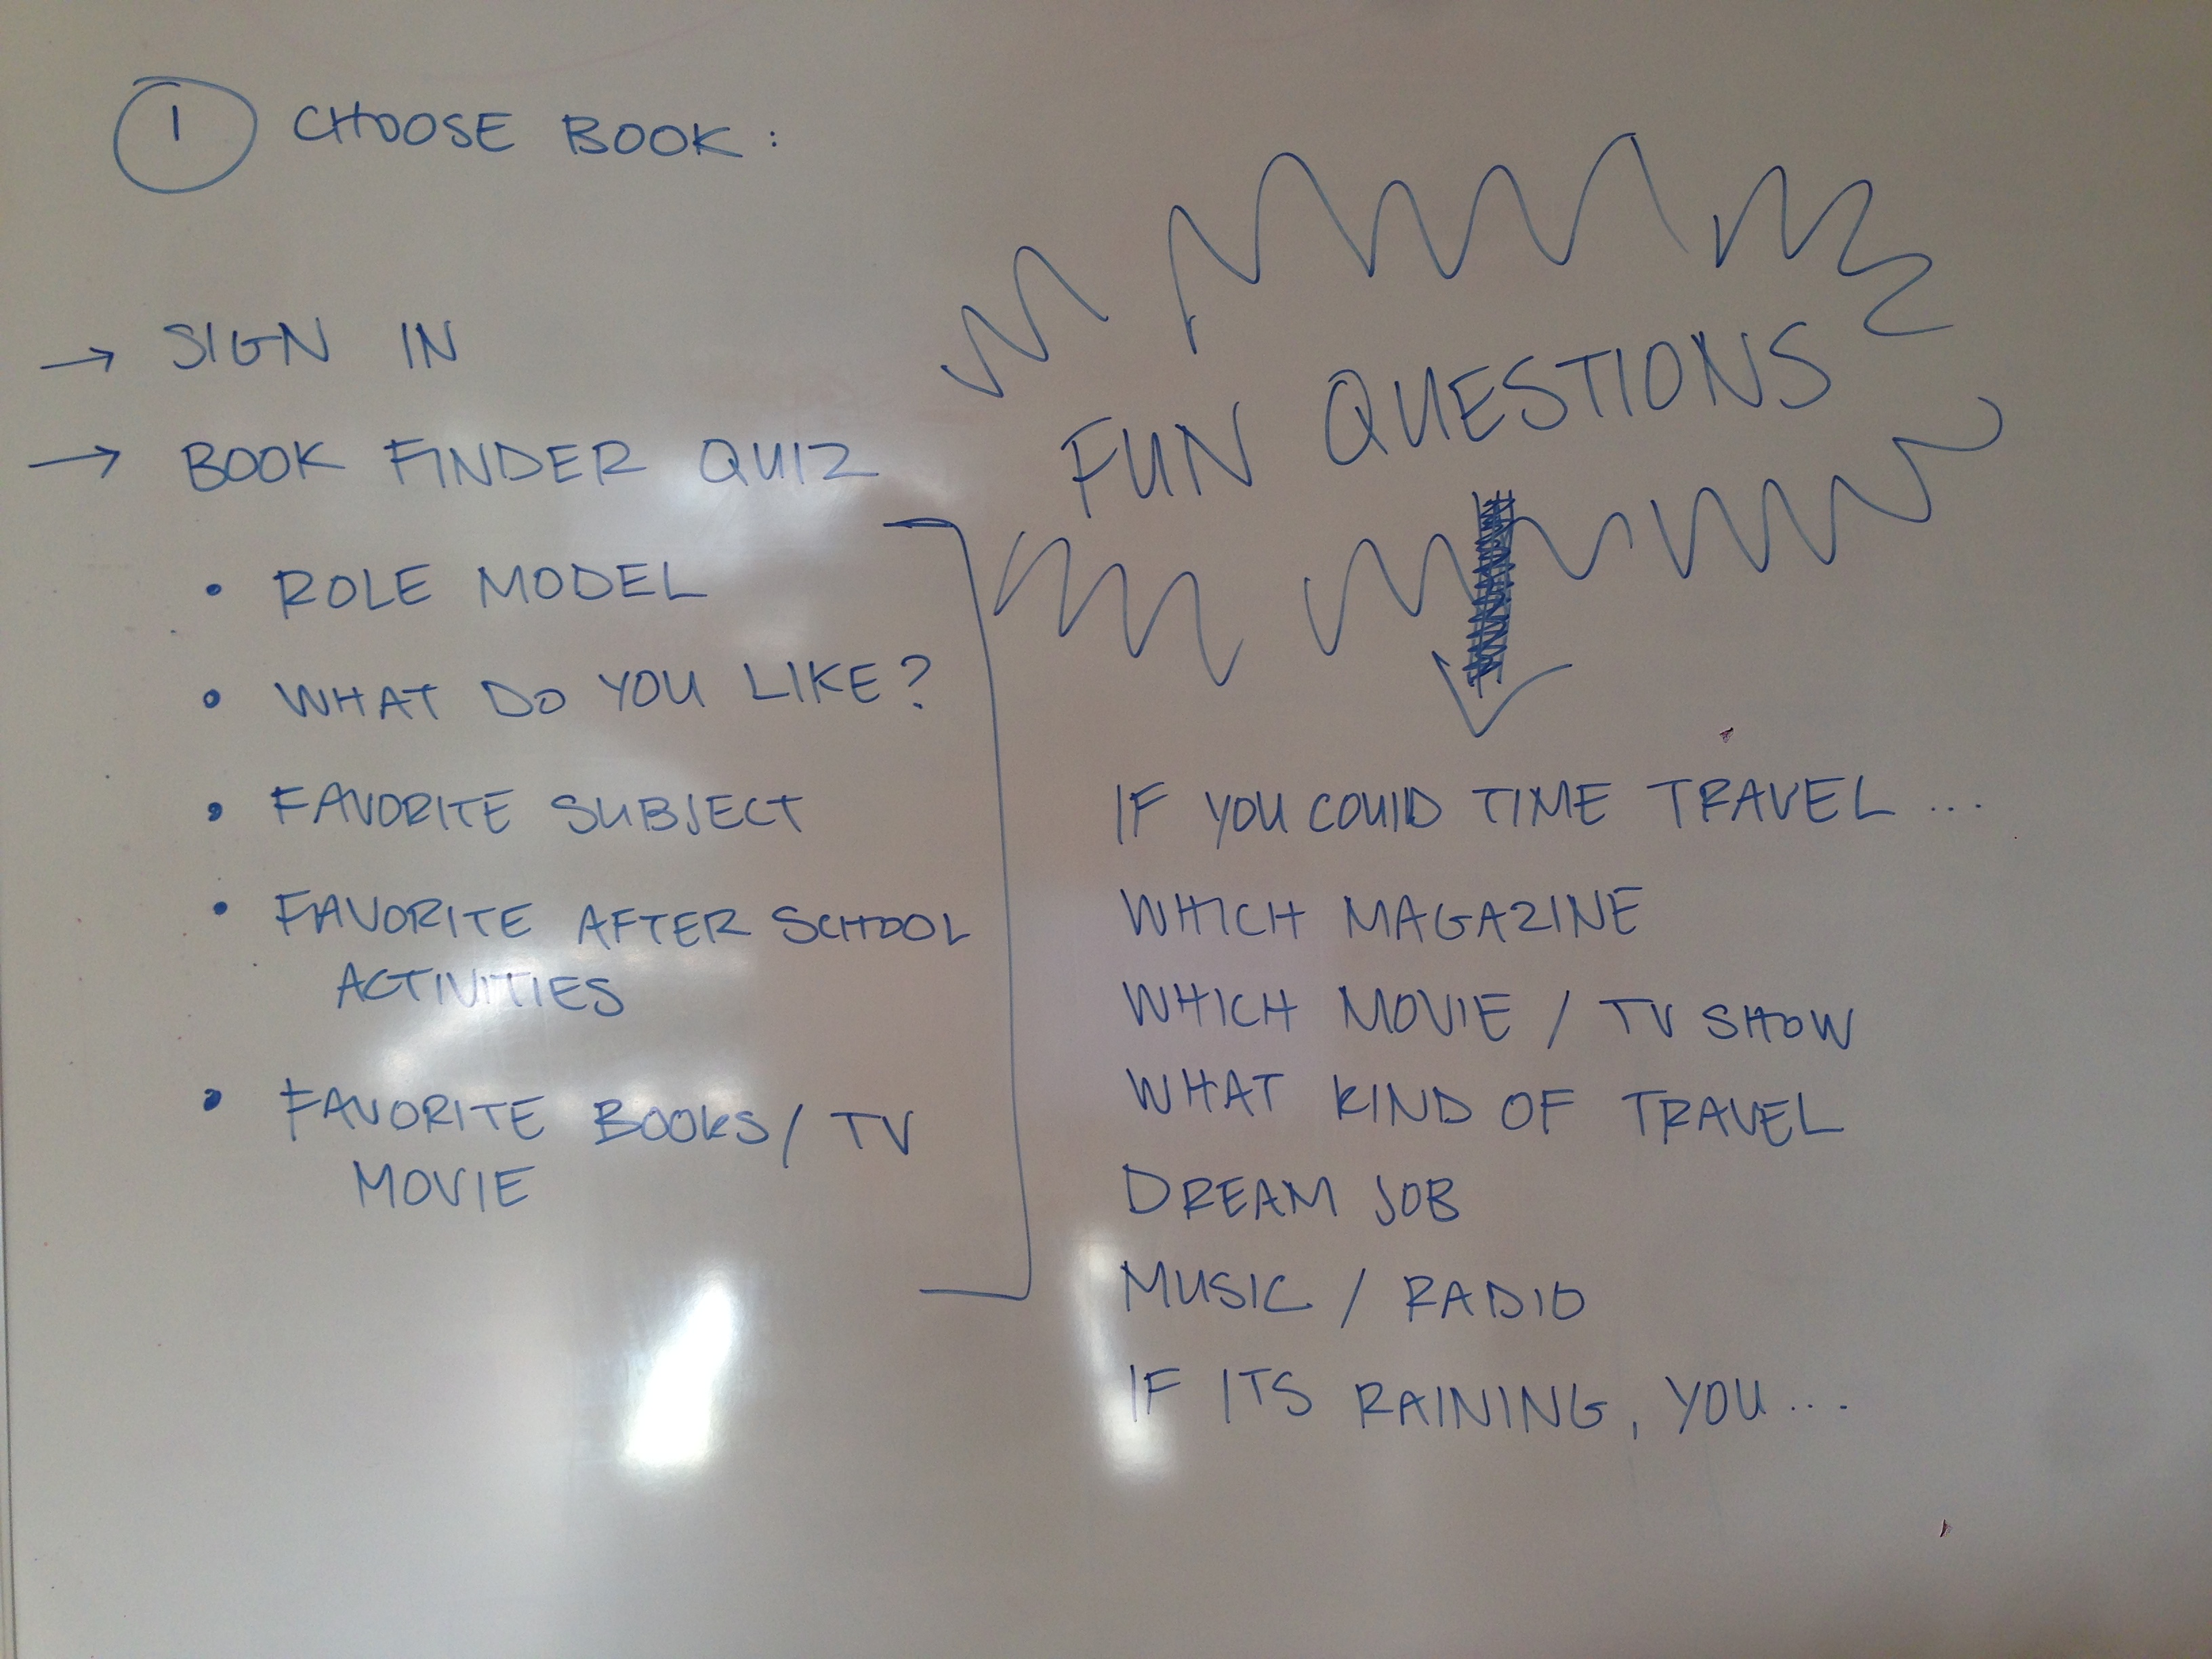 1 CHOOSE BOOK:
→ SIGN IN
→ BOOK FINDER QUIZ
• ROLE MODEL
• WHAT DO YOU LIKE?
• FAVORITE SUBJECT
• FAVORITE AFTER SCHOOL
ACTIVITIES
• FAVORITE BOOKS / TV
MOVIE
FUN QUESTIONS
IF YOU COULD TIME TRAVEL ...
WHICH MAGAZINE
WHICH MOVIE / TV SHOW
WHAT KIND OF TRAVEL
DREAM JOB
MUSIC / RADIO
IF ITS RAINING, YOU ...